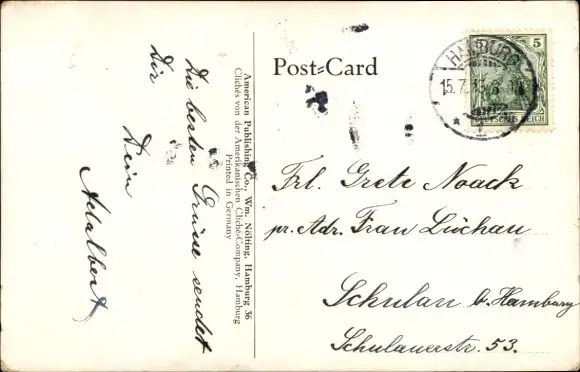 Post-Card
HAMBURG
15.7.13
5
DEUTSCHES REICH
Frl. Grete Noack
pr. Adr. Frau Lüchau
Schulau b. Hamburg
Schulauerstr. 53.
American Publishing Co., Wm. Nölting, Hamburg 36
Clichés von der Amerikanischen Cliché-Company, Hamburg
Printed in Germany
Die besten Grüsse sendet
Dir
Dein
Adalbert